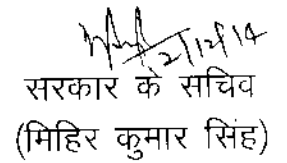 2/12/14
सरकार के सचिव
(मिहिर कुमार सिंह)